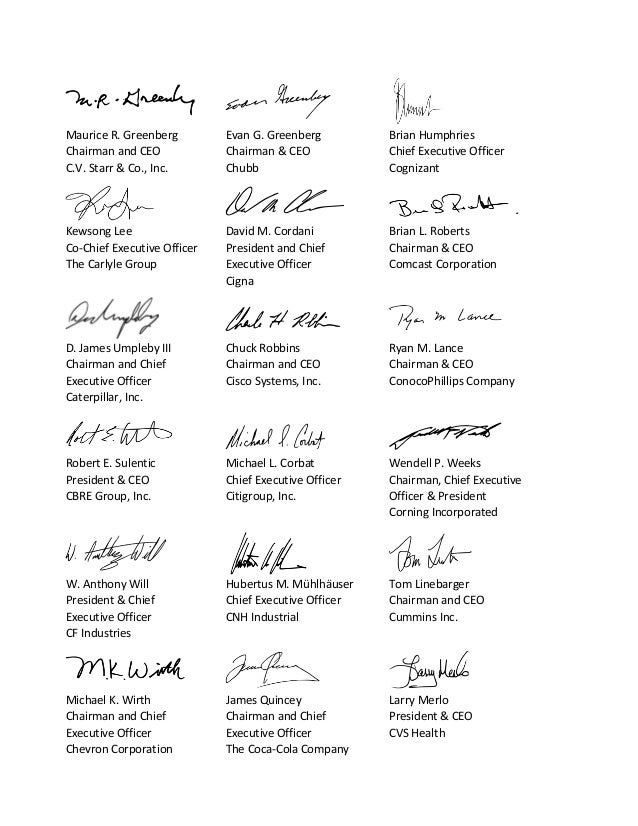 M.R. Greenberg
Maurice R. Greenberg
Chairman and CEO
C.V. Starr & Co., Inc.
Evan Greenberg
Evan G. Greenberg
Chairman & CEO
Chubb
Brian Humphries
Chief Executive Officer
Cognizant
Kewsong Lee
Co-Chief Executive Officer
The Carlyle Group
David M. Cordani
President and Chief
Executive Officer
Cigna
Brian L. Roberts
Chairman & CEO
Comcast Corporation
D. James Umpleby III
Chairman and Chief
Executive Officer
Caterpillar, Inc.
Charles H Robbins
Chuck Robbins
Chairman and CEO
Cisco Systems, Inc.
Ryan M Lance
Ryan M. Lance
Chairman & CEO
ConocoPhillips Company
Robert E. Sulentic
President & CEO
CBRE Group, Inc.
Michael L. Corbat
Michael L. Corbat
Chief Executive Officer
Citigroup, Inc.
Wendell P. Weeks
Chairman, Chief Executive
Officer & President
Corning Incorporated
W. Anthony Will
W. Anthony Will
President & Chief
Executive Officer
CF Industries
Hubertus M. Mühlhäuser
Chief Executive Officer
CNH Industrial
Tom Linebarger
Chairman and CEO
Cummins Inc.
M.K. Wirth
Michael K. Wirth
Chairman and Chief
Executive Officer
Chevron Corporation
James Quincey
Chairman and Chief
Executive Officer
The Coca-Cola Company
Larry Merlo
Larry Merlo
President & CEO
CVS Health